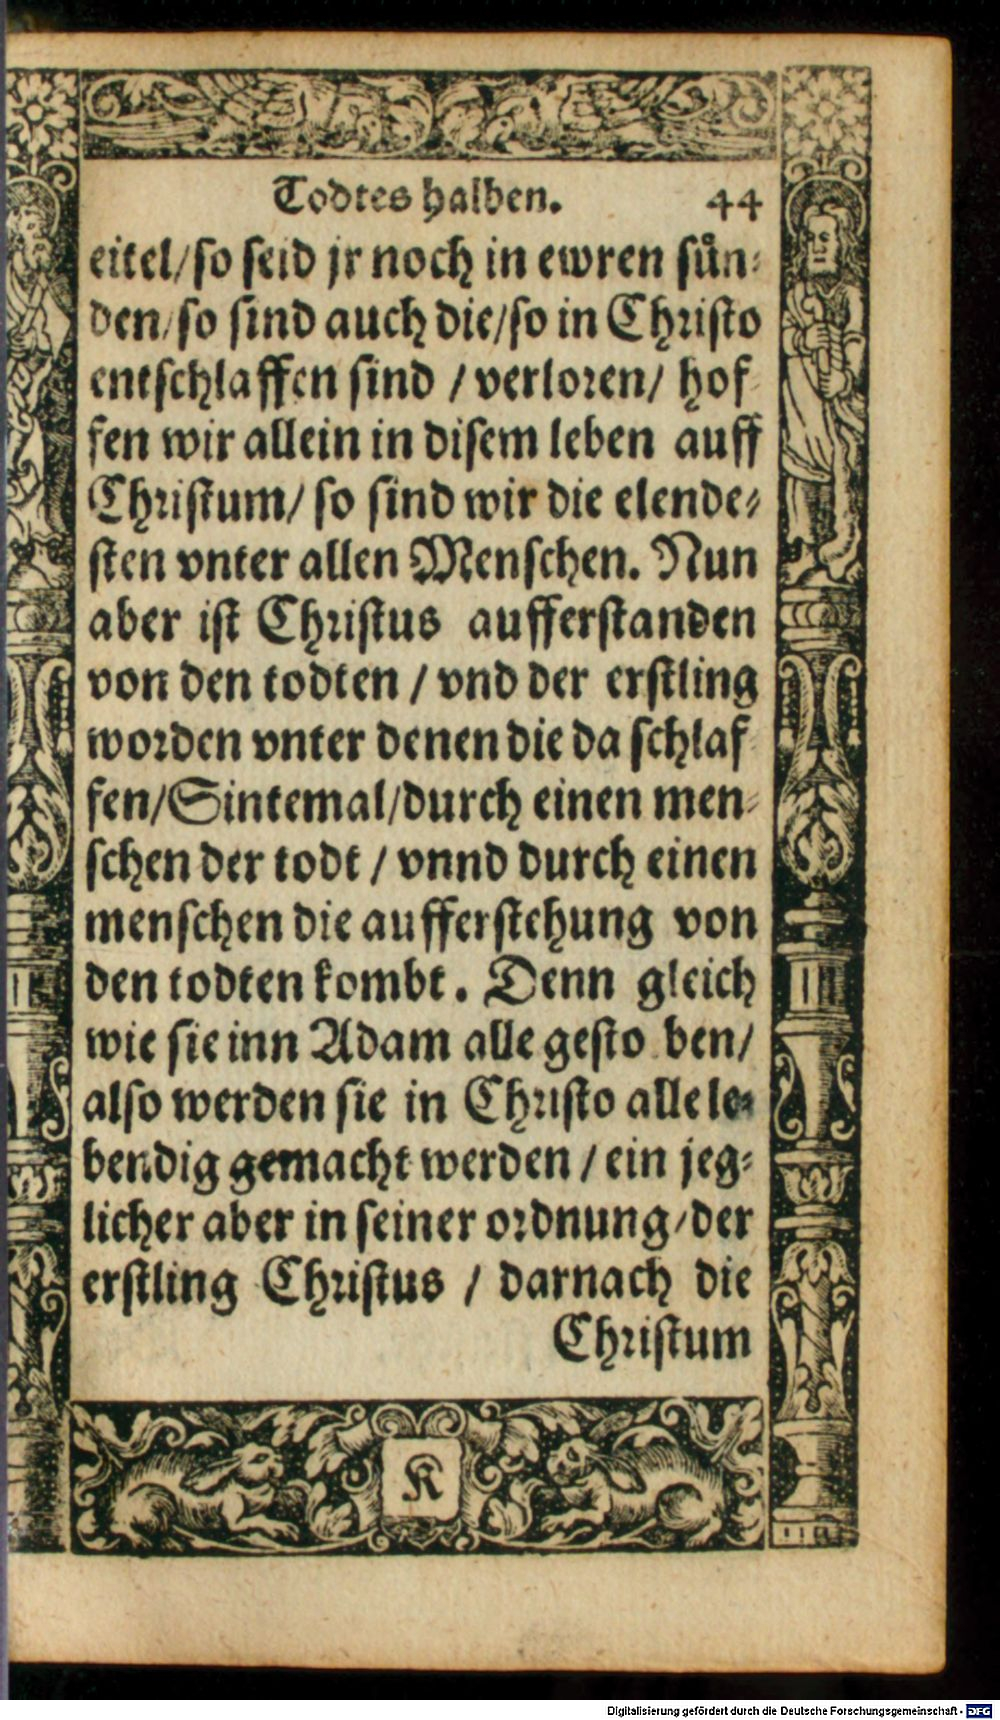 Todtes halben. 44
eitel/so seid jr noch in ewren sůn-
den/so sind auch die/so in Christo
entschlaffen sind / verloren/ hof-
fen wir allein in disem leben auff
Christum/ so sind wir die elende-
sten vnter allen Menschen. Nun
aber ist Christus aufferstanden
von den todten / vnd der erstling
worden vnter denen die da schlaf-
fen/Sintemal/durch einen men-
schen der todt / vnnd durch einen
menschen die aufferstehung von
den todten kombt. Denn gleich
wie sie inn Adam alle gesto ben/
also werden sie in Christo alle le-
bendig gemacht werden / ein jeg-
licher aber in seiner ordnung/der
erstling Christus / darnach die
Christum
K
Digitalisierung gefördert durch die Deutsche Forschungsgemeinschaft - DFG